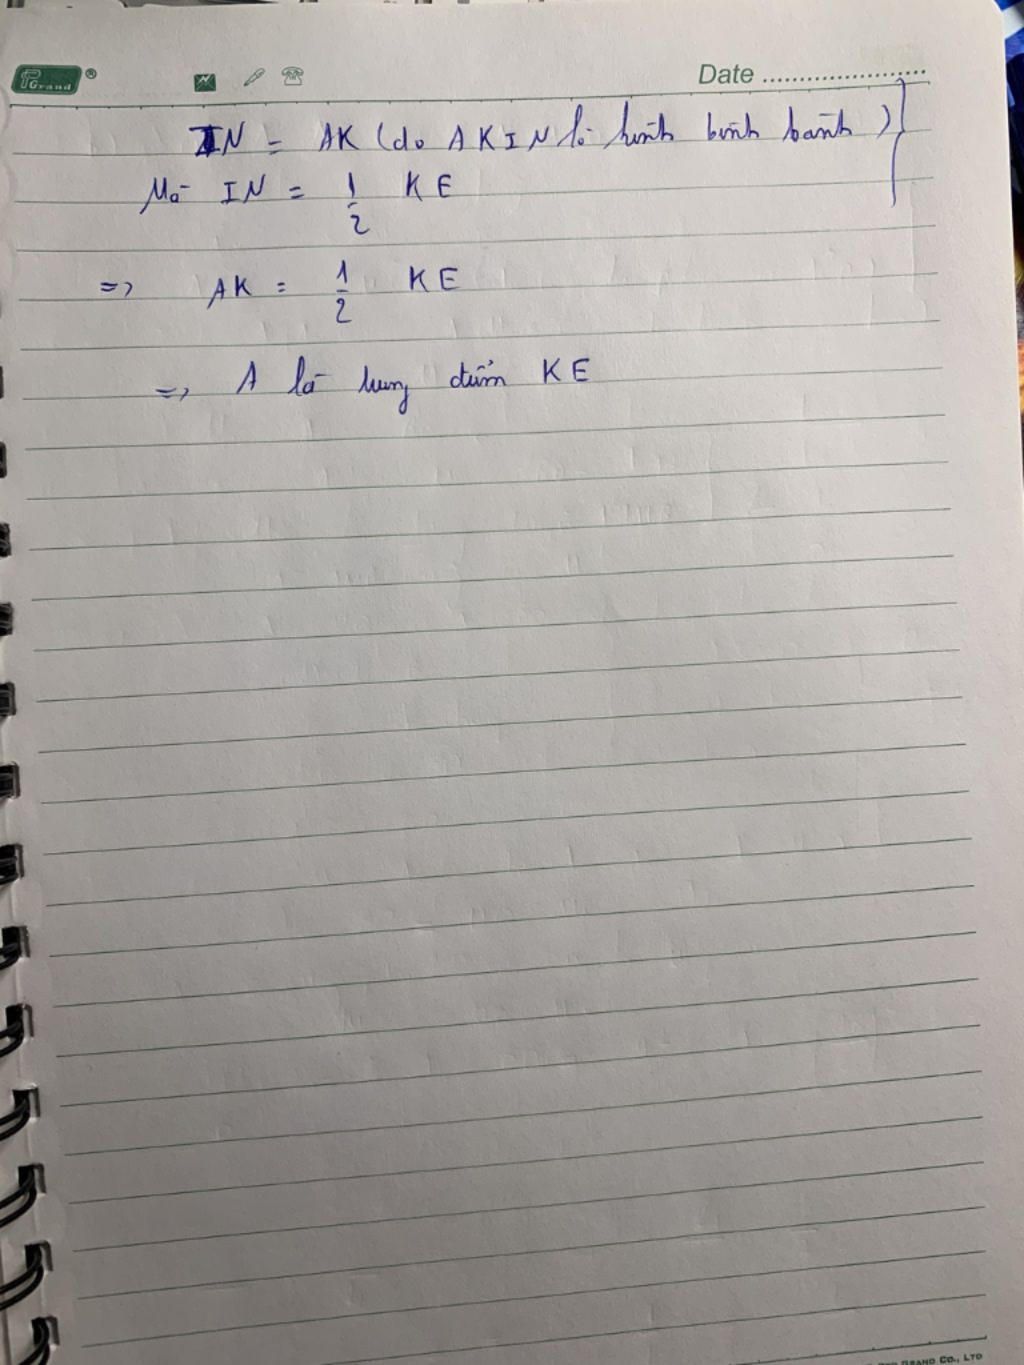 PGrand ®
Date ........................
IN = AK (do AKIN là hình bình hành)
Mà IN = 1/2 KE
=> AK = 1/2 KE
=> A là trung điểm KE
GRAND CO., LTD